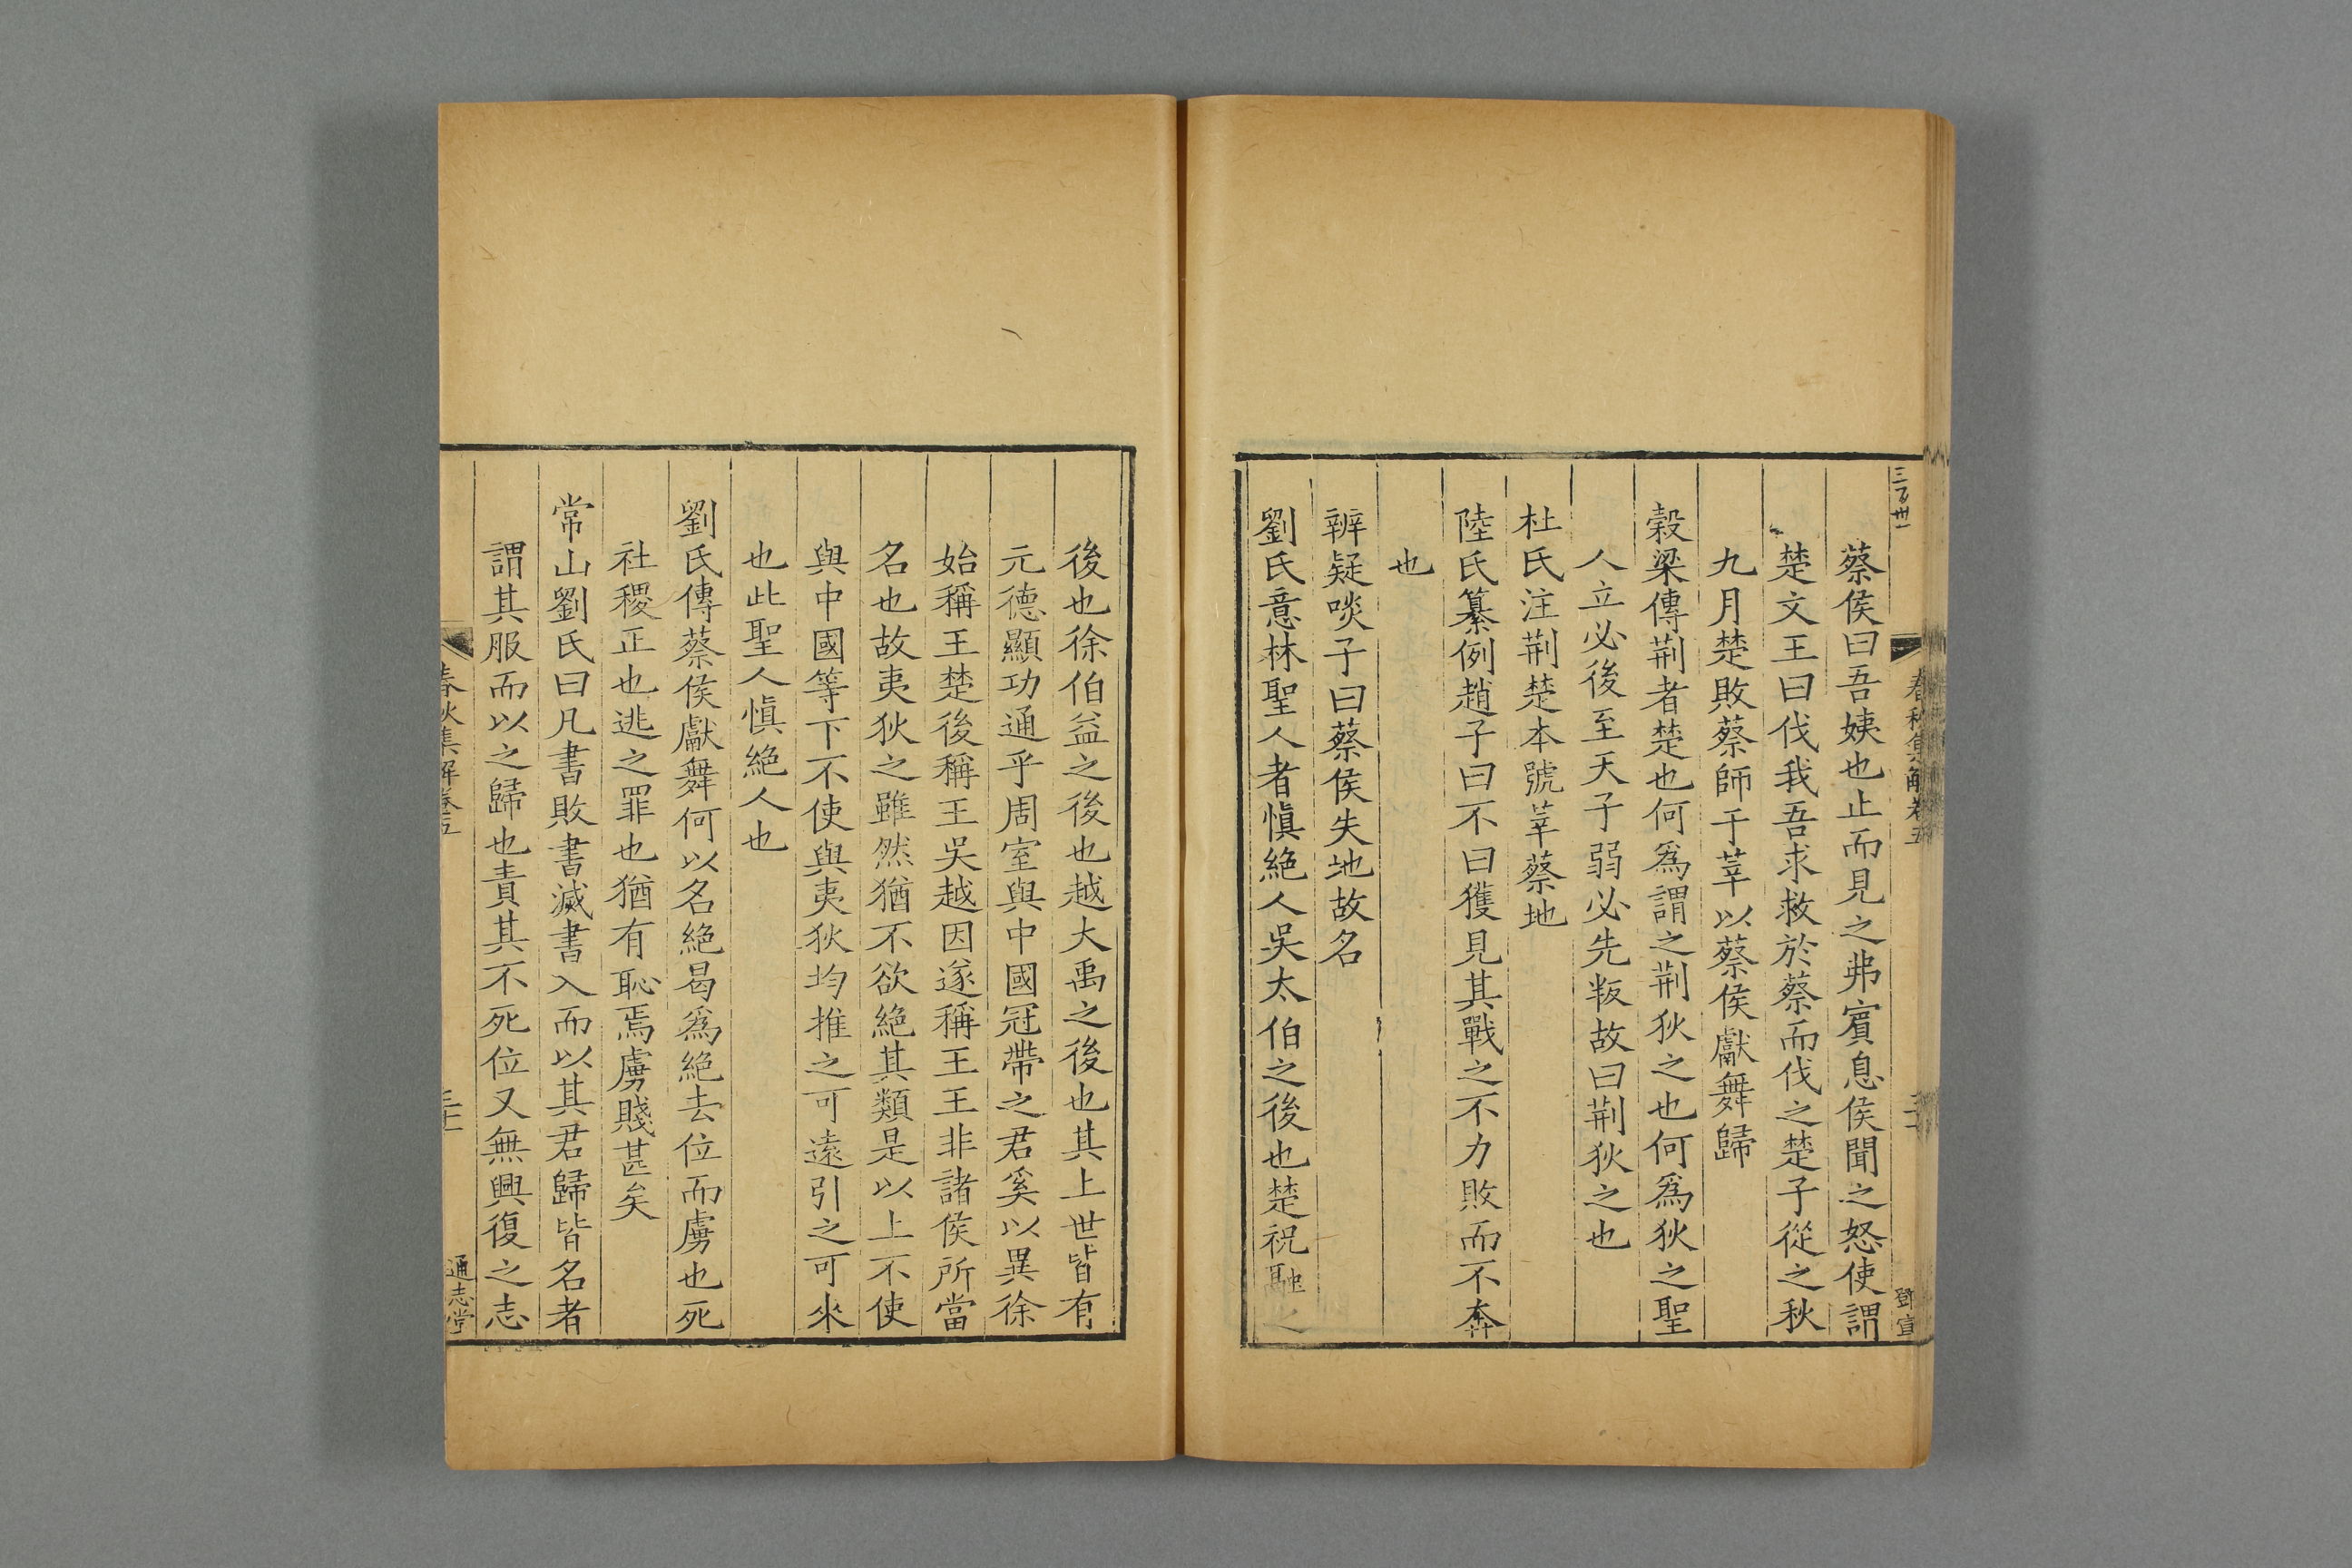 蔡侯曰吾姨也止而見之弗賓息侯聞之怒使謂
楚文王曰伐我吾求救於蔡而伐之楚子從之秋
九月楚敗蔡師于莘以蔡侯獻舞歸
穀梁傳荆者楚也何爲謂之荆狄之也何爲狄之聖
人立必後至天子弱必先叛故曰荆狄之也
杜氏注荆楚本號莘蔡地
陸氏纂例趙子曰不曰獲見其戰之不力敗而不奔
也
辨疑啖子曰蔡侯失地故名
劉氏意林聖人者慎絶人吳太伯之後也楚祝融之
後也徐伯益之後也越大禹之後也其上世皆有
元德顯功通乎周室與中國冠帶之君奚以異徐
始稱王楚後稱王吳越因遂稱王王非諸侯所當
名也故夷狄之雖然猶不欲絶其類是以上不使
與中國等下不使與夷狄均推之可遠引之可來
也此聖人慎絶人也
劉氏傳蔡侯獻舞何以名絶曷爲絶去位而虜也死
社稷正也逃之罪也猶有恥焉虜賤甚矣
常山劉氏曰凡書敗書滅書入而以其君歸皆名者
謂其服而以之歸也責其不死位又無興復之志
春秋集解卷五
通志堂
春秋集解卷五
鄧宣